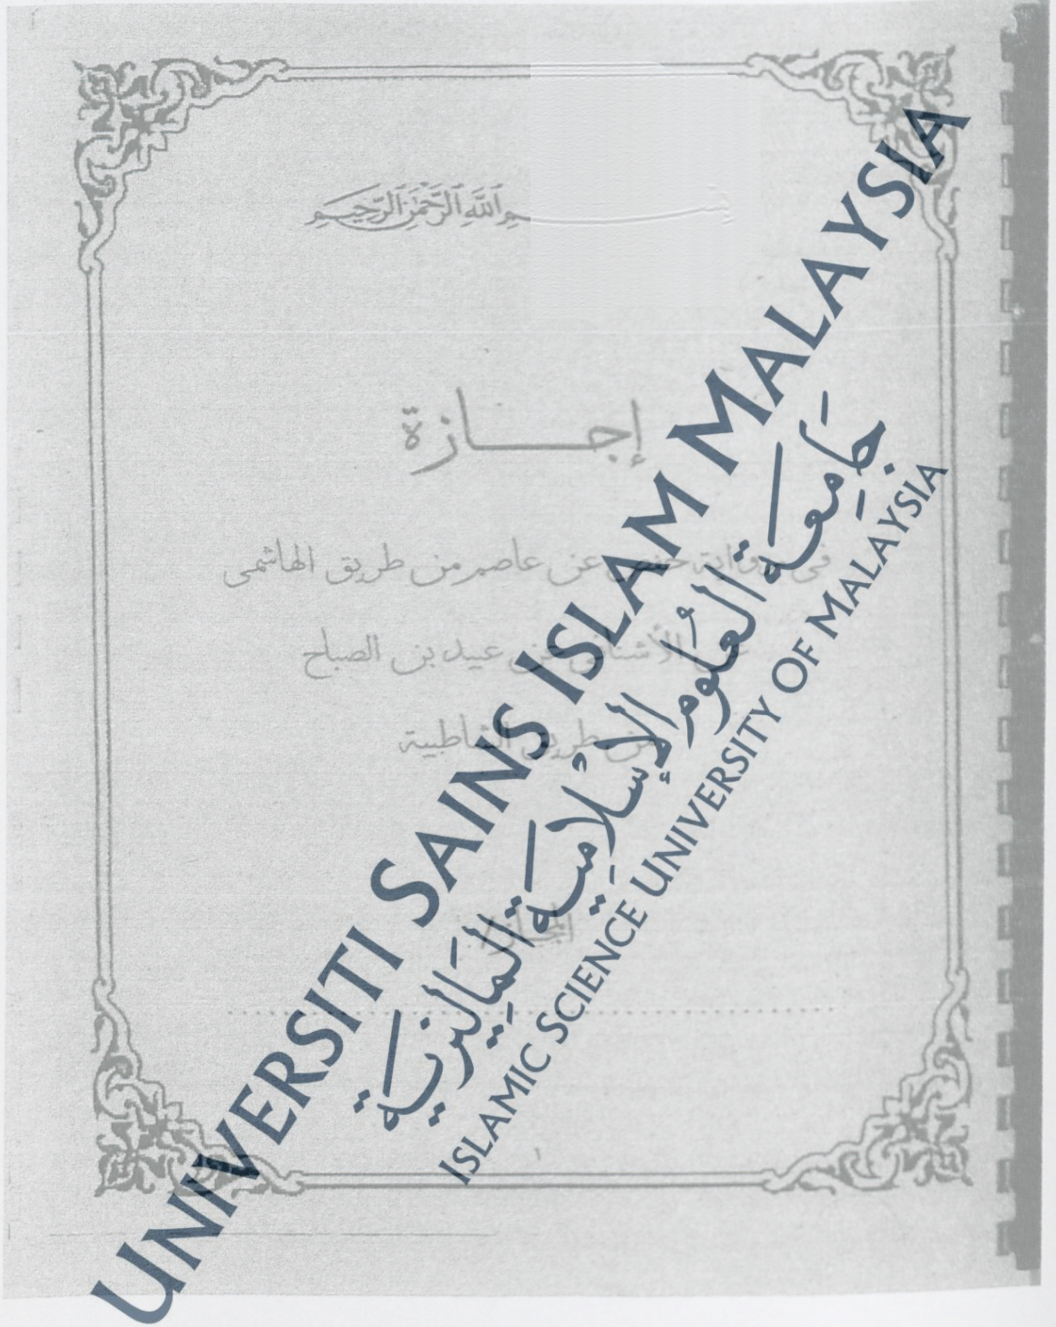 بِسْمِ ٱللَّهِ ٱلرَّحْمَٰنِ ٱلرَّحِيمِ
إجـــــازة
فى رواية حفص عن عاصم من طريق الهاشمى
عن الأشنانى عن عبيد بن الصباح
من طريق الشاطبية
المجــاز /
..........................................
١
UNIVERSITI SAINS ISLAM MALAYSIA
جَامِعَة العُلُوم الإسْلَامِيَة المَالِيزِيَة
ISLAMIC SCIENCE UNIVERSITY OF MALAYSIA